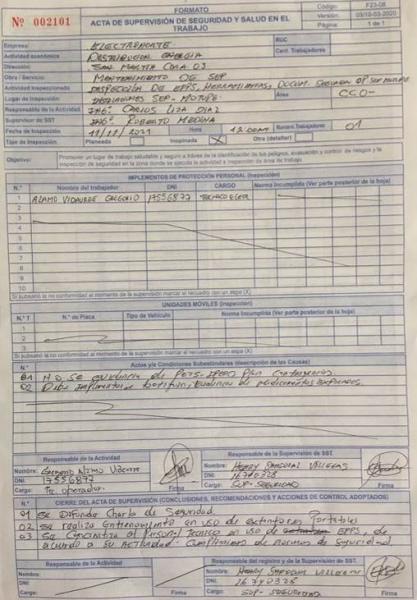 Nº 002101
FORMATO
ACTA DE SUPERVISIÓN DE SEGURIDAD Y SALUD EN EL TRABAJO
Código: F23-08
Versión: 03/13-03-2020
Página: 1 de 1
Empresa: ELECTRONORTE RUC
Actividad económica: DISTRIBUCION ENERGIA Cant. Trabajadores
Dirección: SAN MARTIN
Obra / Servicio: MANTENIMIENTO DE SEP
Actividad Inspeccionada: INSPECCIÓN DE EPPS, HERRAMIENTAS, DOCUM.
Lugar de Inspección: SEP - MOTUPE. Área
Responsable de la Actividad: CARLOS DIAZ
Supervisor de SST: ROBERTO MEDINA
Fecha de Inspección: 11/11/2021 Hora Numero Trabajadores: 01
Tipo de Inspección: Planeada Inopinada X Otra (detallar)
Objetivo: Promover un lugar de trabajo saludable y seguro a través de la identificación de los peligros, evaluación y control de riesgos y la inspección de seguridad en la zona donde se ejecuta la actividad e inspección de área de trabajo.
IMPLEMENTOS DE PROTECCIÓN PERSONAL (Inspección)
N.º Nombre del trabajador DNI CARGO Norma Incumplida (Ver parte posterior de la hoja)
1 ALAMO VIDAURRE GREGORIO 17556877 TECNICO
2
3
4
5
6
7
8
9
10
Si subsanó la no conformidad al momento de la supervisión marcar el recuadro con un aspa (X)
UNIDADES MÓVILES (Inspección)
N.º T N.º de Placa Tipo de Vehículo Norma Incumplida (Ver parte posterior de la hoja)
1
2
3
Si subsanó la no conformidad al momento de la supervisión marcar el recuadro con un aspa (X)
Actos y/o Condiciones Subestándares (descripción de las Causas)
01 No se evidencia de PETS - IPERC Plan Contingencias.
02 Debe implementar botiquin,
Responsable de la Actividad
Nombre:
DNI: 17556877
Cargo: Tec. operador
Firma
Responsable de Supervisión de SST.
Nombre: HENRY SANDOVAL VILLEGAS
DNI: 16740328
Cargo: SUP - SEGURIDAD
Firma
CIERRE DEL ACTA DE SUPERVISIÓN (CONCLUSIONES, RECOMENDACIONES Y ACCIONES DE CONTROL ADOPTADOS)
01 Se Difunde Charla de Seguridad.
02 se realiza Entrenamiento en uso de extintores Portatiles
03 Se Concientiza al Personal Tecnico en uso de EPPS, de
acuerdo a su ACTIVIDAD - Cumplimiento de Normas de Seguridad
Responsable de la Actividad
Nombre:
DNI:
Cargo:
Firma
Responsable del registro y de la Supervisión de SST.
Nombre: HENRY SANDOVAL VILLEGAS
DNI: 16740328
Cargo: SUP - SEGURIDAD
Firma